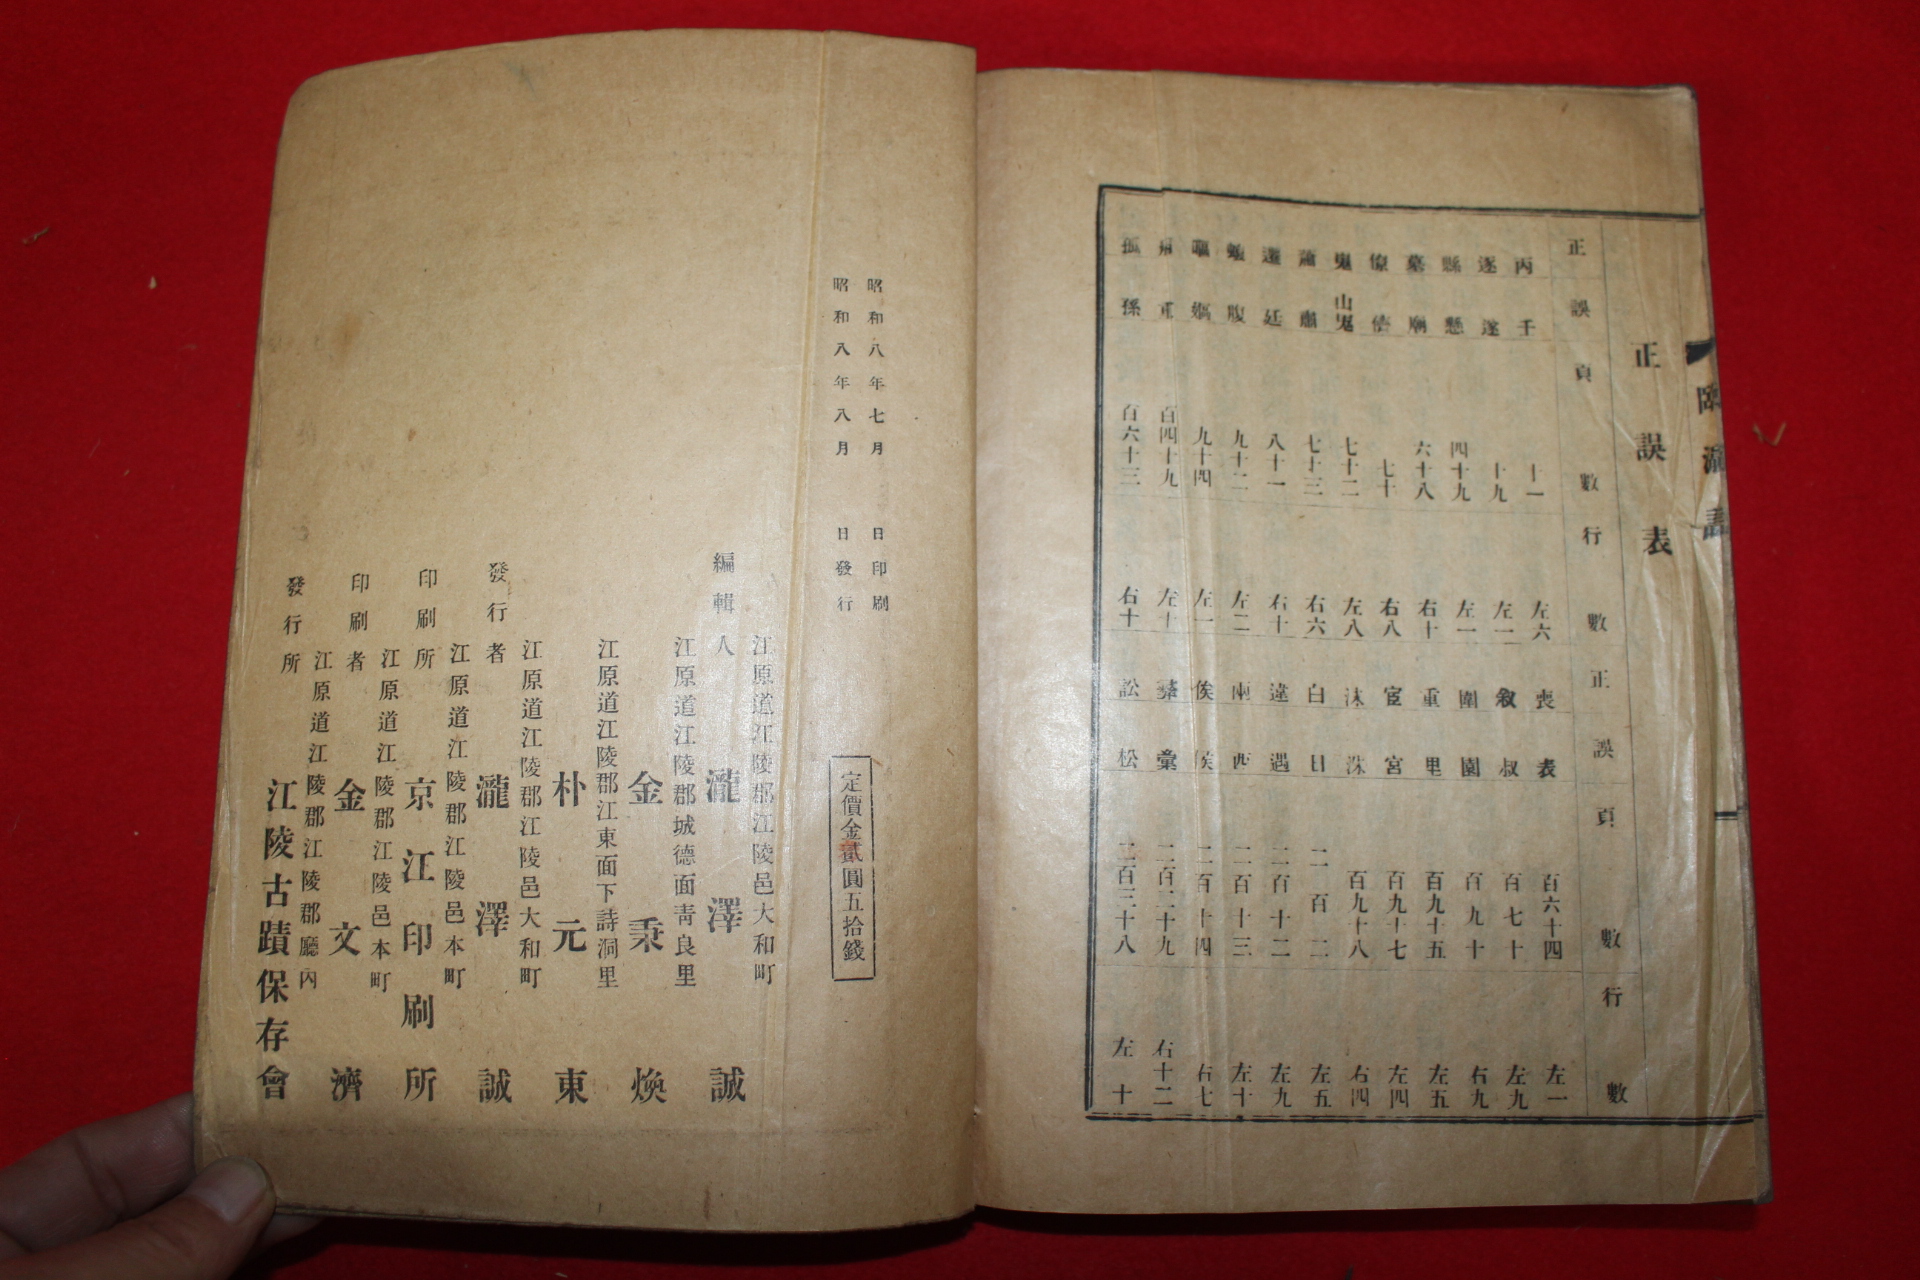 臨瀛誌
正誤表
正 誤 頁數 行數 正 誤 頁數 行數
丙 千 十一 左六 喪 表 百六十四 左一
逐 遂 十九 左二 敘 叔 百七十 左九
縣 懸 四十九 左一 圍 園 百九十 右九
墓 廟 六十八 右十 重 里 百九十五 左五
七十 右八 宦 宮 百九十七 左四
鬼 山鬼 七十二 左八 沫 洙 百九十八 右四
蕭 肅 七十三 右六 白 日 二百二 左五
還 廷 八十一 右十 違 遇 二百十二 左九
腹 九十二 左二 兩 西 二百十三 左十
九十四 左一 俟 侯 二百十四 右七
重 百四十九 左十 彙 二百二十九 右十二
孤 孫 百六十三 右十 訟 松 二百三十八 左十
昭和八年七月 日印刷
昭和八年八月 日發行
定價金貳圓五拾錢
江原道江陵郡江陵邑大和町
編輯人 瀧澤誠
江原道江陵郡城德面靑良里
金秉煥
江原道江陵郡江東面下詩洞里
朴元東
江原道江陵郡江陵邑大和町
發行者 瀧澤誠
江原道江陵郡江陵邑本町
印刷所 京江印刷所
江原道江陵郡江陵邑本町
印刷者 金文濟
江原道江陵郡江陵郡廳內
發行所 江陵古蹟保存會